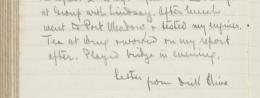 at Group with Lindsay. After lunch
went to Port Meadow & tested my engines.
Tea at Wing & worked on my report
after. Played bridge in evening.
Letter from Drill Olive